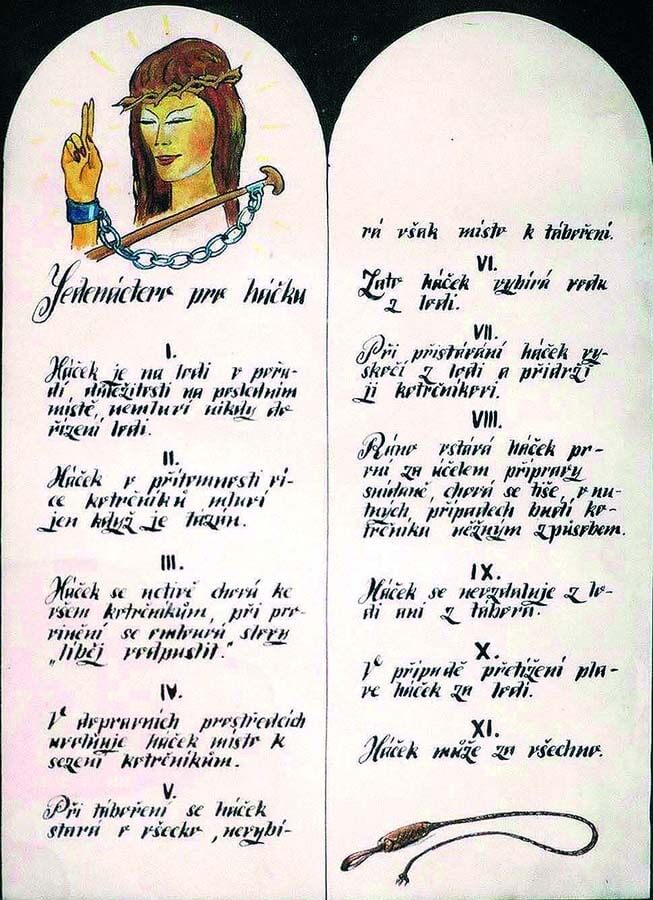 Jedenáctero pro háčka
I.
Háček je na lodi v pořa-
dí důležitosti na posledním
místě, nemluví nikdy do
řízení lodi.
II.
Háček v přítomnosti ví-
ce kotrčníků mluví
jen když je tázán.
III.
Háček se uctivě chová ke
všem kotrčníkům, při pro-
vinění se omlouvá slovy
„líběj vodpustit."
IV.
V dopravních prostředcích
uvolňuje háček místo k
sezení kotrčníkům.
V.
Při táboření se háček
stará o všecko, nevybí-
rá však místo k táboření.
VI.
Zato háček vybírá vodu
z lodi.
VII.
Při přistávání háček vy-
skočí z lodi a přidrží
ji kotrčníkovi.
VIII.
Ráno vstává háček pr-
vní za účelem přípravy
snídaně, chová se tiše, v nu-
tných případech budí ko-
trčníka něžným způsobem.
IX.
Háček se nevzdaluje z lo-
di ani z tábora.
X.
V případě přetížení pla-
ve háček za lodí.
XI.
Háček může za všechno.